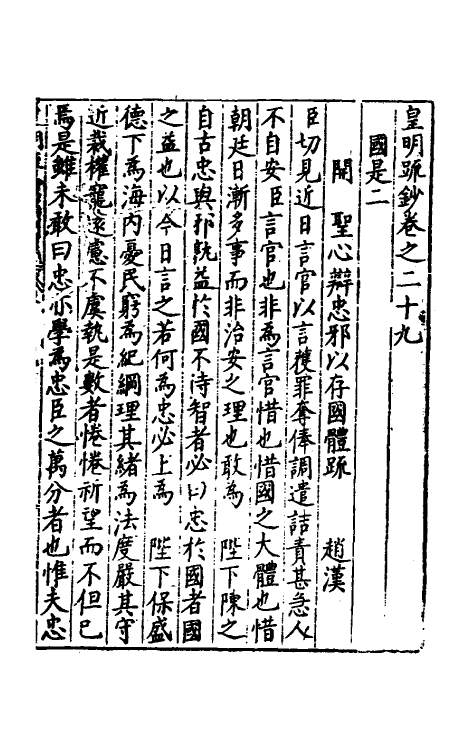 皇明疏鈔卷之二十九
國是二
開 聖心辯忠邪以存國體疏 趙漢
臣切見近日言官以言獲罪奪俸調遣詰責甚急人
不自安臣言官也非為言官惜也惜國之大體也惜
朝廷日漸多事而非治安之理也敢為 陛下陳之
自古忠與邪孰益於國不待智者必曰忠於國者國
之益也以今日言之若何為忠必上為 陛下保盛
德下為海內憂民窮為紀綱理其緒為法度嚴其守
近裁權寵遠憲不虞執是數者惓惓祈望而不但已
焉是雖未敢曰忠亦學為忠臣之萬分者也惟夫忠